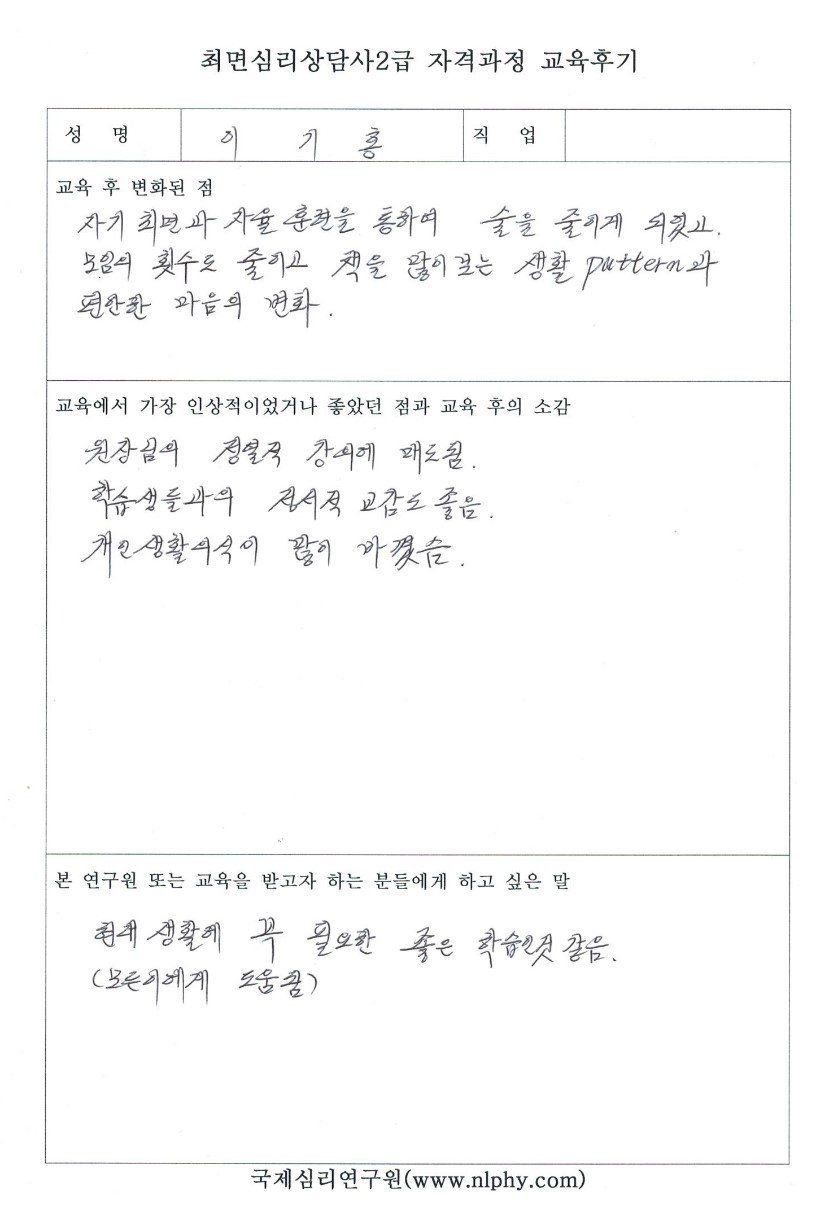 최면심리상담사2급 자격과정 교육후기
성 명 이 기 홍 직 업
교육 후 변화된 점
자기 최면과 자율 훈련을 통하여 술을 줄이게 되었고.
모임의 횟수도 줄이고 책을 많이 보는 생활 puttern과
편안한 마음의 변화.
교육에서 가장 인상적이었거나 좋았던 점과 교육 후의 소감
원장님의 정열적 강의에 매도됨.
학습생들과의 정서적 교감도 좋음.
개인생활의식이 많이 바꼈슴.
본 연구원 또는 교육을 받고자 하는 분들에게 하고 싶은 말
현재 생활에 꼭 필요한 좋은 학습인것 같음.
(모든이에게 도움)
국제심리연구원(www.nlphy.com)